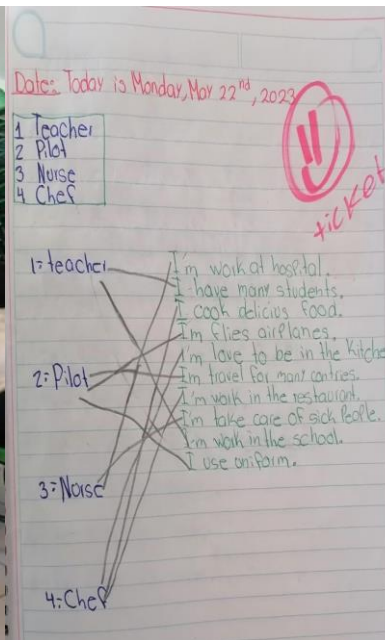 Date: Today is Monday, May 22nd, 2023
ticket
1 Teacher
2 Pilot
3 Nurse
4 Chef
1= teacher
I'm work at hospital.
I have many students.
I cook delicius food.
Im flies airplanes.
I'm love to be in the Kitchen
2= Pilot
Im travel for many contries.
I'm work in the restaurant.
I'm take care of sick People.
I'm work in the school.
I use uniform.
3= Norse
4= Chef